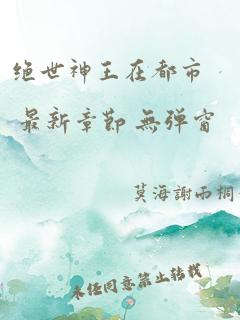 绝世神王在都市
最新章节 無弹窗
莫海謝雨桐
未经同意禁止转载